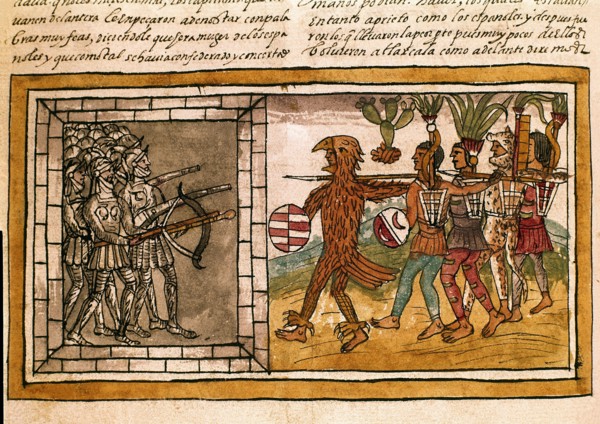 uanen delantera Començaron adenostar conpala
bras muy feas, diciendole quesera muger delosespa
noles y quecomotal sehauiaconfederado y concertado
manos podian. los quales
entanto aprieto como los españoles, y despues fue
ron los q̃ lleuaron lapeor pte pues muy pocos dello
Boluieron atlaxcala como adelante diremos